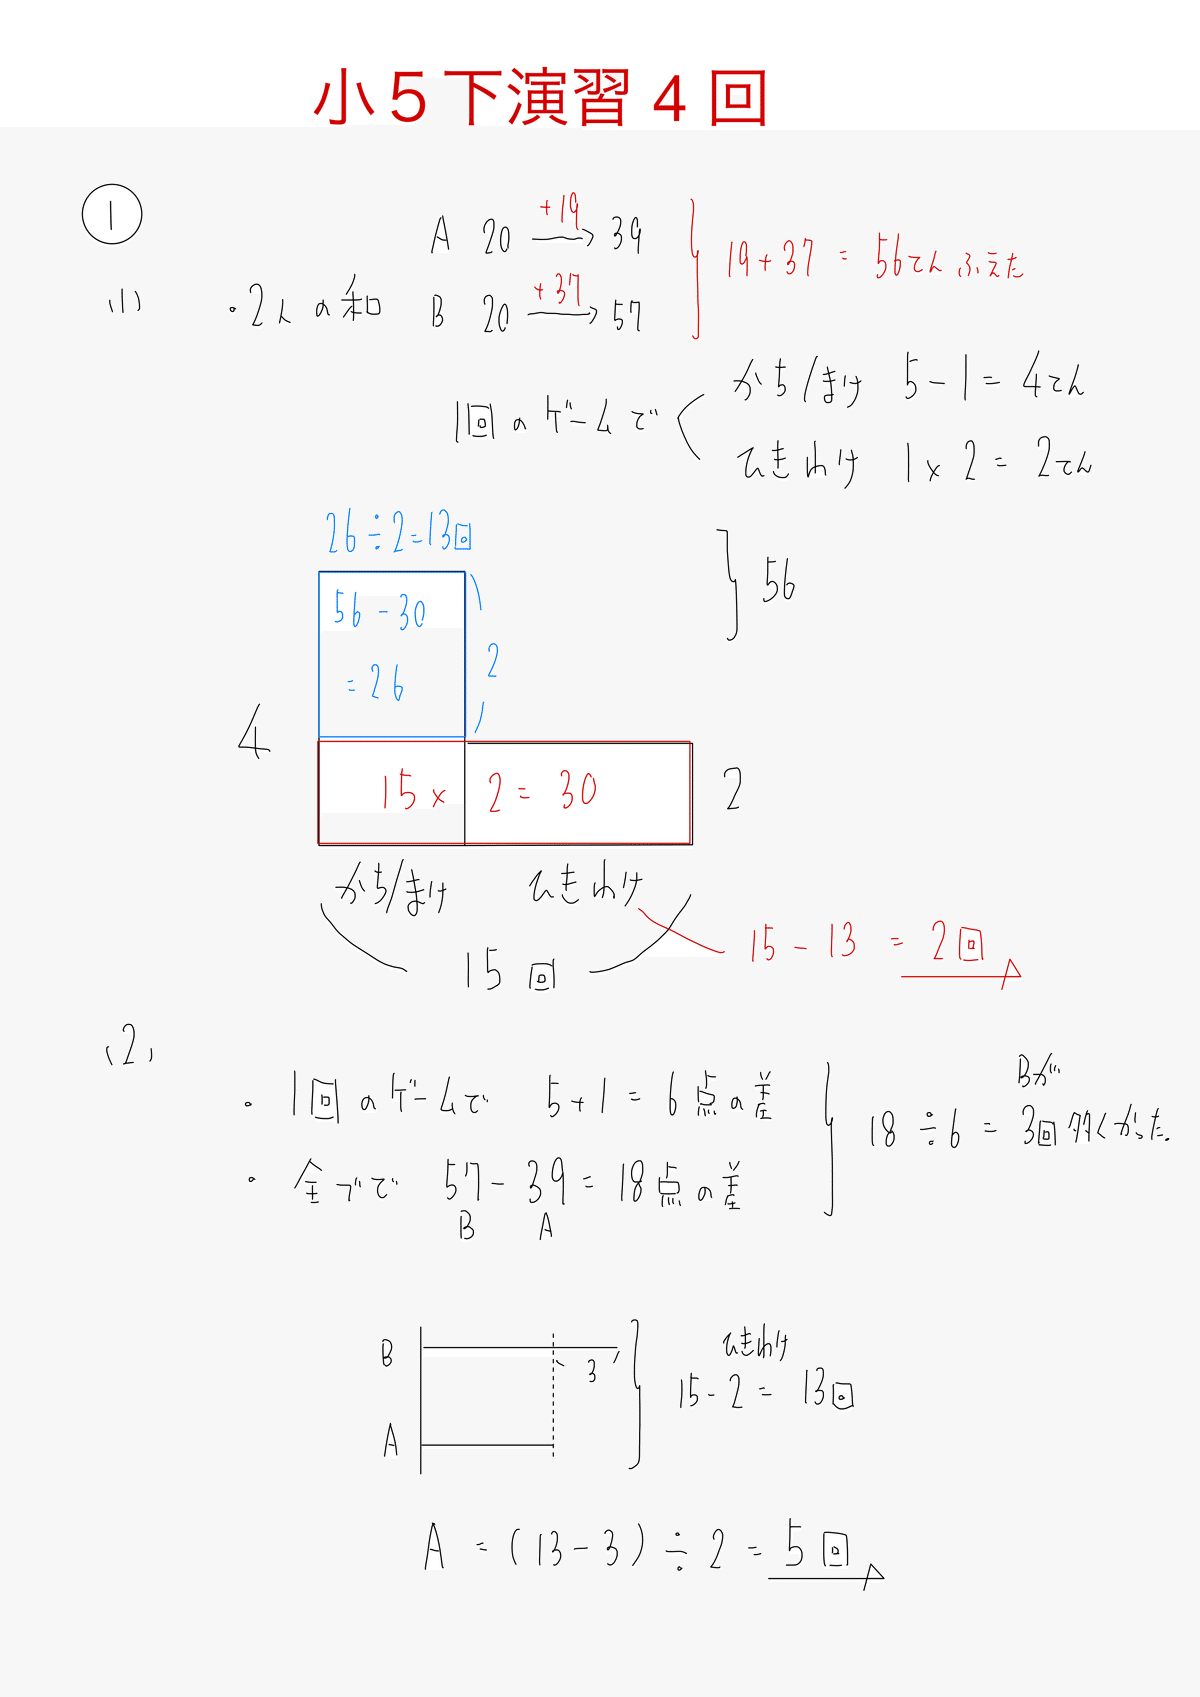 小5下演習4回
①
(1)
・2人の和
A 20 +19→ 39
B 20 +37→ 57
19+37 = 56てんふえた
1回のゲームで
かち/まけ 5-1=4てん
ひきわけ 1×2=2てん
26÷2=13回
56-30
=26
2
56
4
15×2=30
2
かち/まけ ひきわけ
15回
15-13 = 2回
(2)
・1回のゲームで 5+1=6点の差
・全ブで 57-39=18点の差
B A
Bが
18÷6 = 3回多くかった。
B
3
A
ひきわけ
15-2= 13回
A = (13-3)÷2=5回